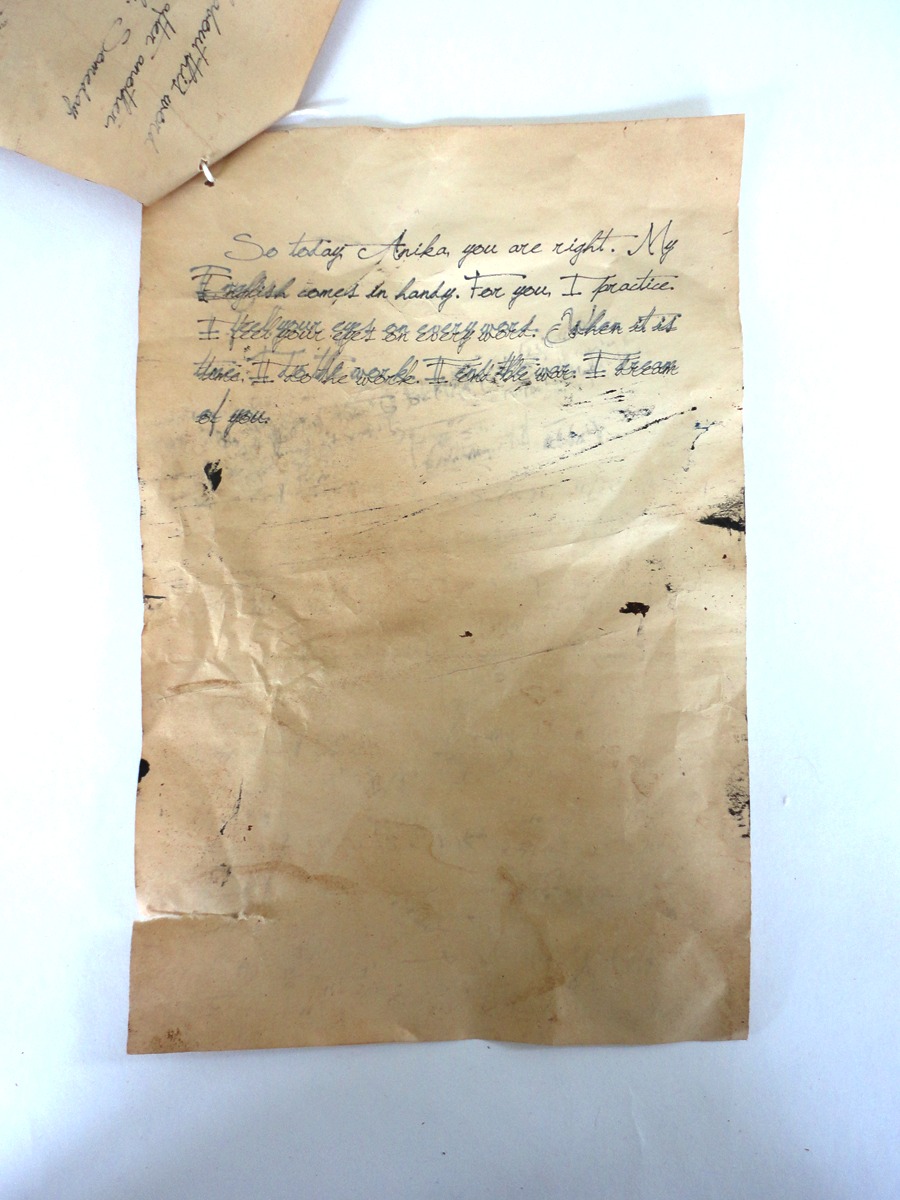 about this word
after another.
Someday
So today, Anika, you are right. My
English comes in handy. For you, I practice.
I feel your eyes on every word. When it is
time. I do the work. I end the war. I dream
of you.